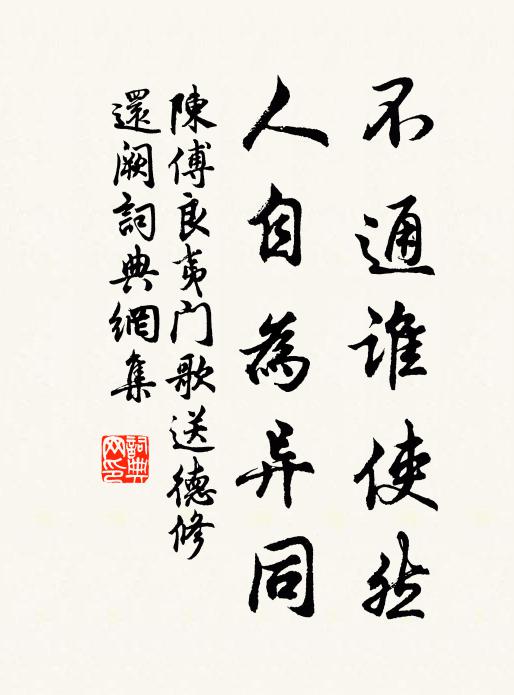 不通誰使然
人自為异同
陳傅良夷门歌送德修
還阙詞典網集
詞典网印